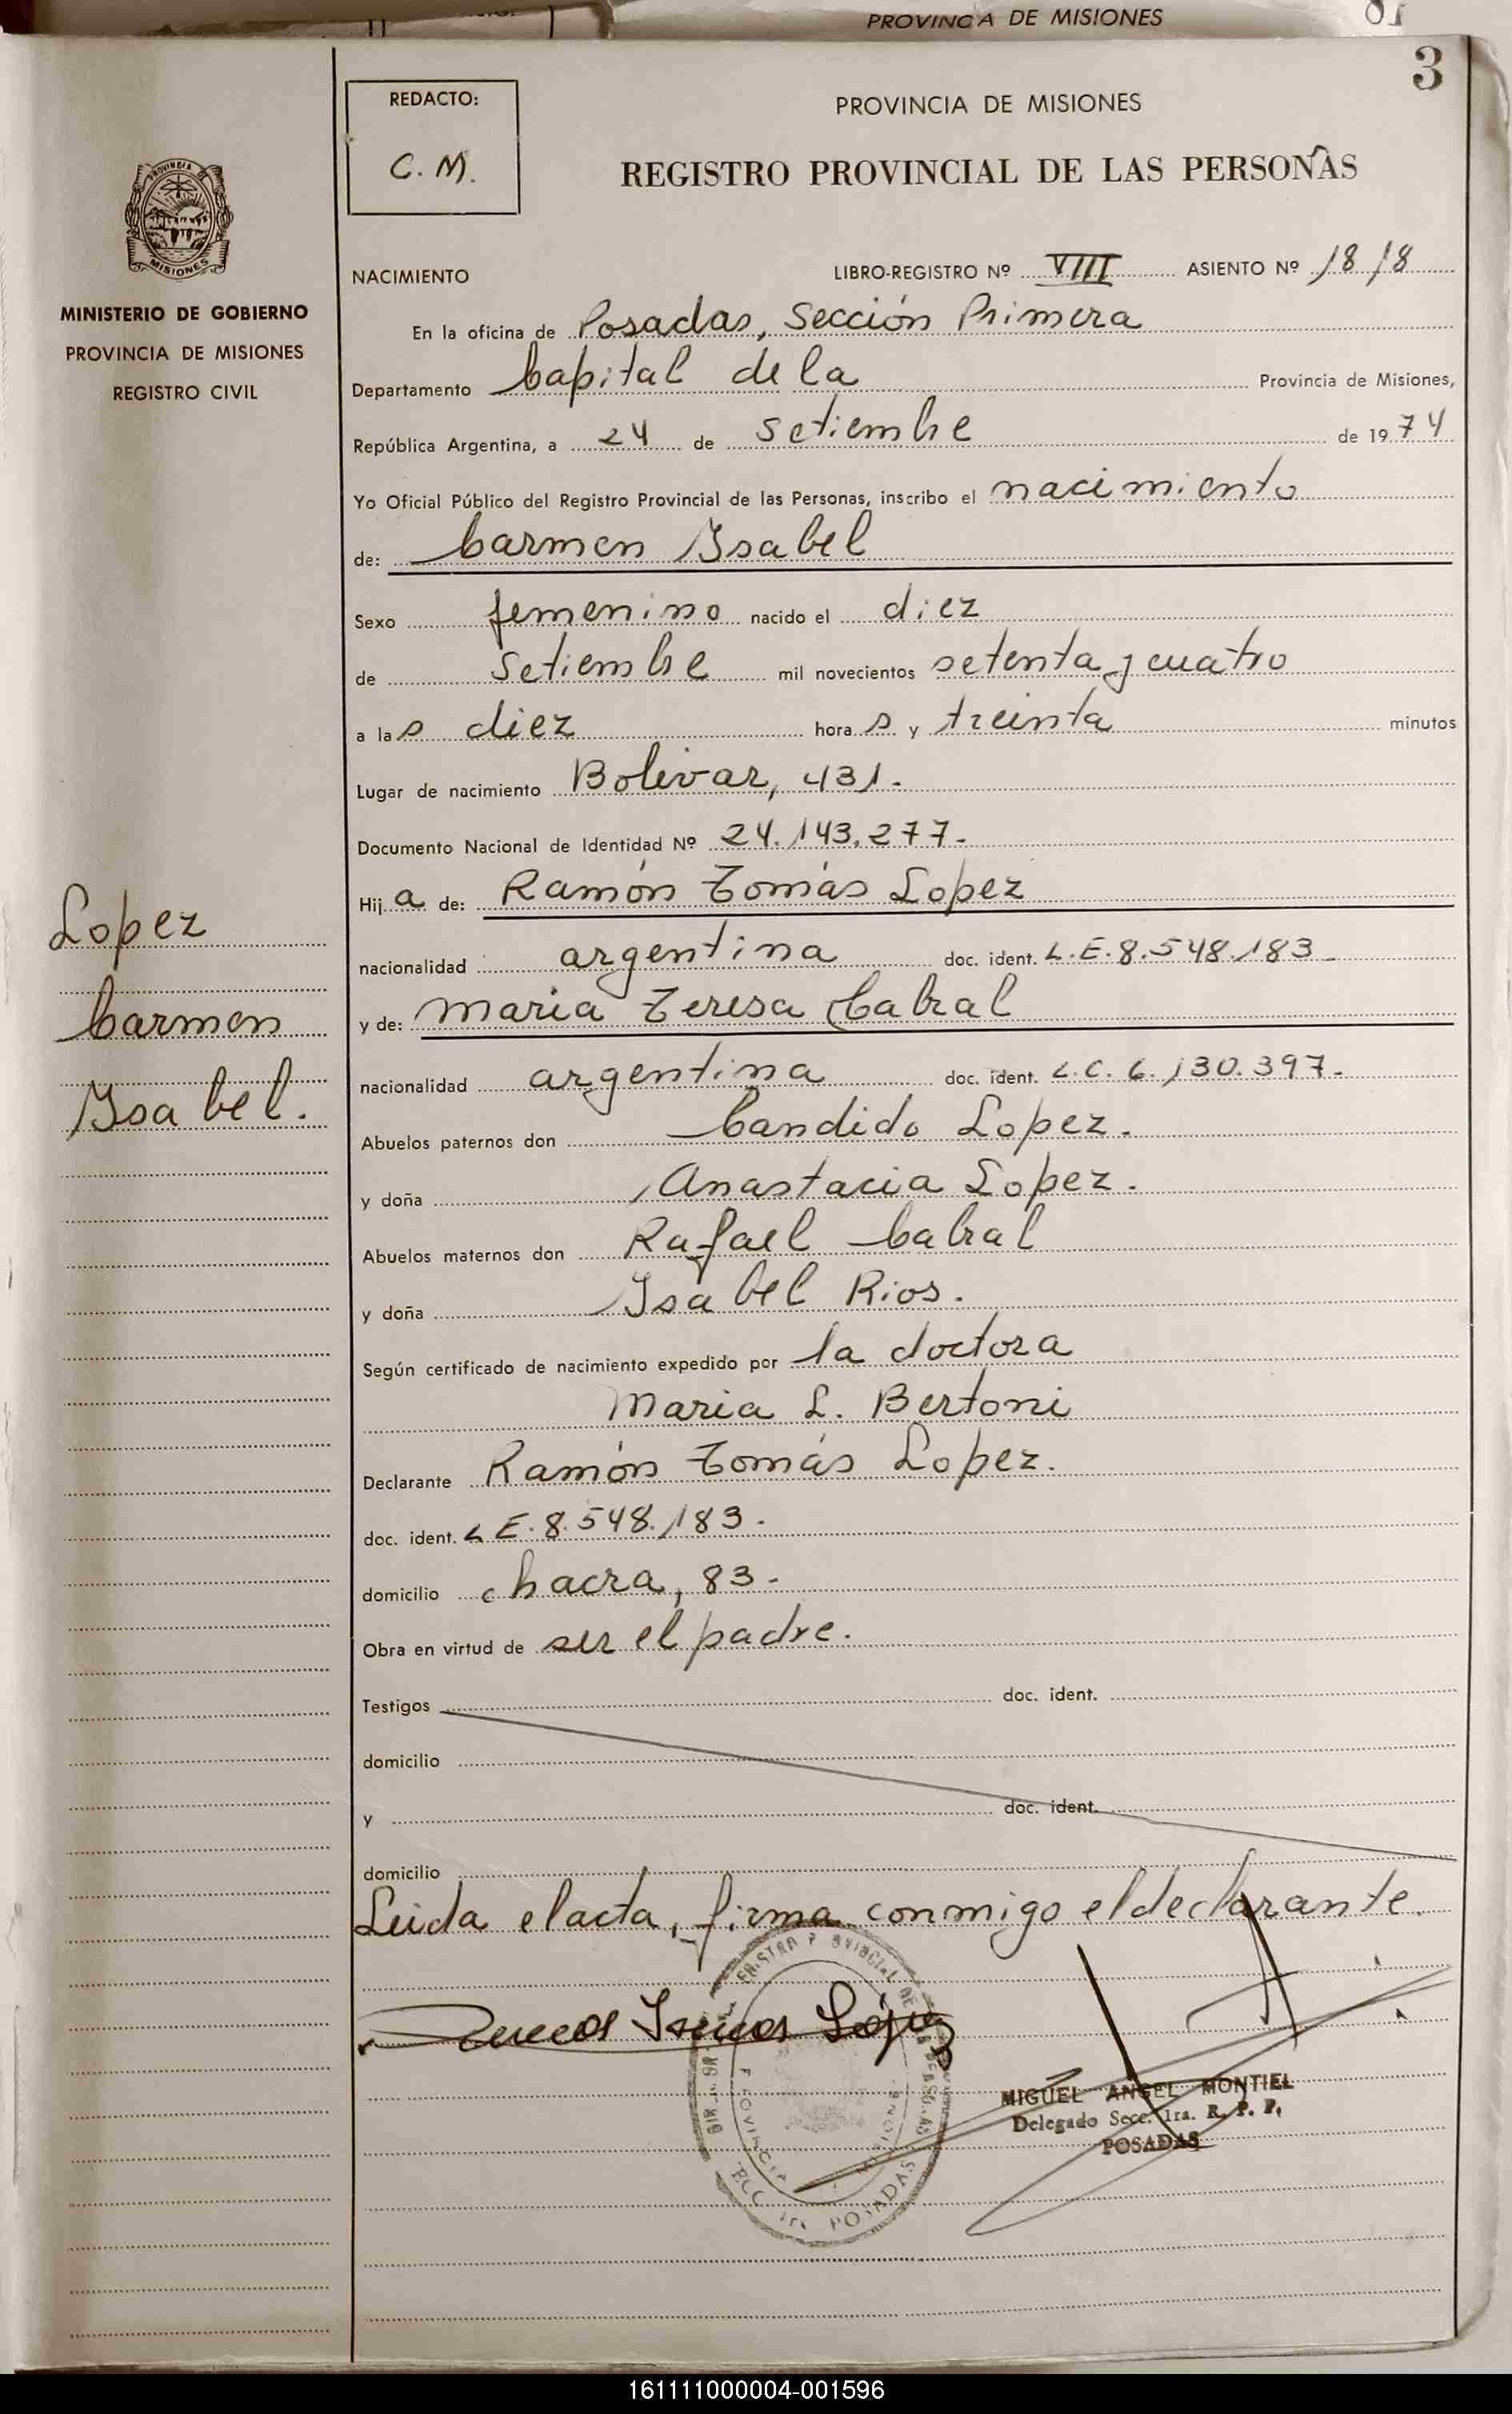 PROVINCIA DE MISIONES
3
REDACTO:
C. M.
PROVINCIA DE MISIONES
REGISTRO PROVINCIAL DE LAS PERSONAS
PROVINCIA DE
MISIONES
MINISTERIO DE GOBIERNO
PROVINCIA DE MISIONES
REGISTRO CIVIL
NACIMIENTO LIBRO-REGISTRO Nº VIII ASIENTO Nº 1818
En la oficina de Posadas, Sección Primera
Departamento Capital de la Provincia de Misiones,
República Argentina, a 24 de Setiembre de 1974
Yo Oficial Público del Registro Provincial de las Personas, inscribo el nacimiento
de: Carmen Ysabel
Sexo femenino nacido el diez
de Setiembre mil novecientos setenta y cuatro
a las diez horas y treinta minutos
Lugar de nacimiento Bolivar, 431.
Documento Nacional de Identidad Nº 24.143.277.
Hija de: Ramón Tomás Lopez
nacionalidad argentina doc. ident. L.E. 8.548.183
y de: Maria Teresa Cabral
nacionalidad argentina doc. ident. L.C. 6.130.397.
Abuelos paternos don Candido Lopez.
y doña Anastacia Lopez.
Abuelos maternos don Rafael Cabral
y doña Ysabel Rios.
Según certificado de nacimiento expedido por la doctora
Maria L. Bertoni
Declarante Ramón Tomás Lopez.
doc. ident. L E. 8.548.183.
domicilio chacra, 83.
Obra en virtud de ser el padre.
Testigos doc. ident.
domicilio
y doc. ident.
domicilio
Leida el acta, firma conmigo el declarante.
Lopez
Carmen
Ysabel.
López
MIGUEL ANGEL MONTIEL
Delegado Secc. 1ra. R. P. P.
POSADAS
POSADAS
161111000004-001596